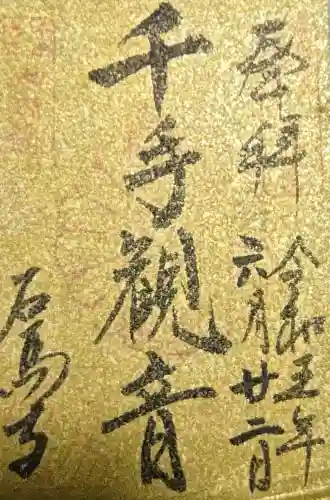 奉拝
令和五年
六月廿二日
千手観音
石馬寺